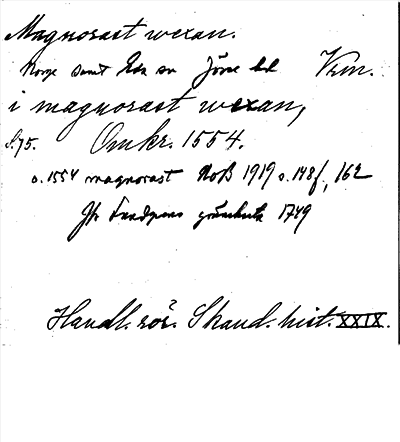 Magnorast wexan.
Norge samt Eda sn Jösse hd Vrm.
i magnorast wexan,
S.75. Omkr. 1554.
o. 1554 magnorast NoB 1919 s. 148f, 162
Jfr gränsbesk 1749
Handl. rör. Skand. hist. XXIX.